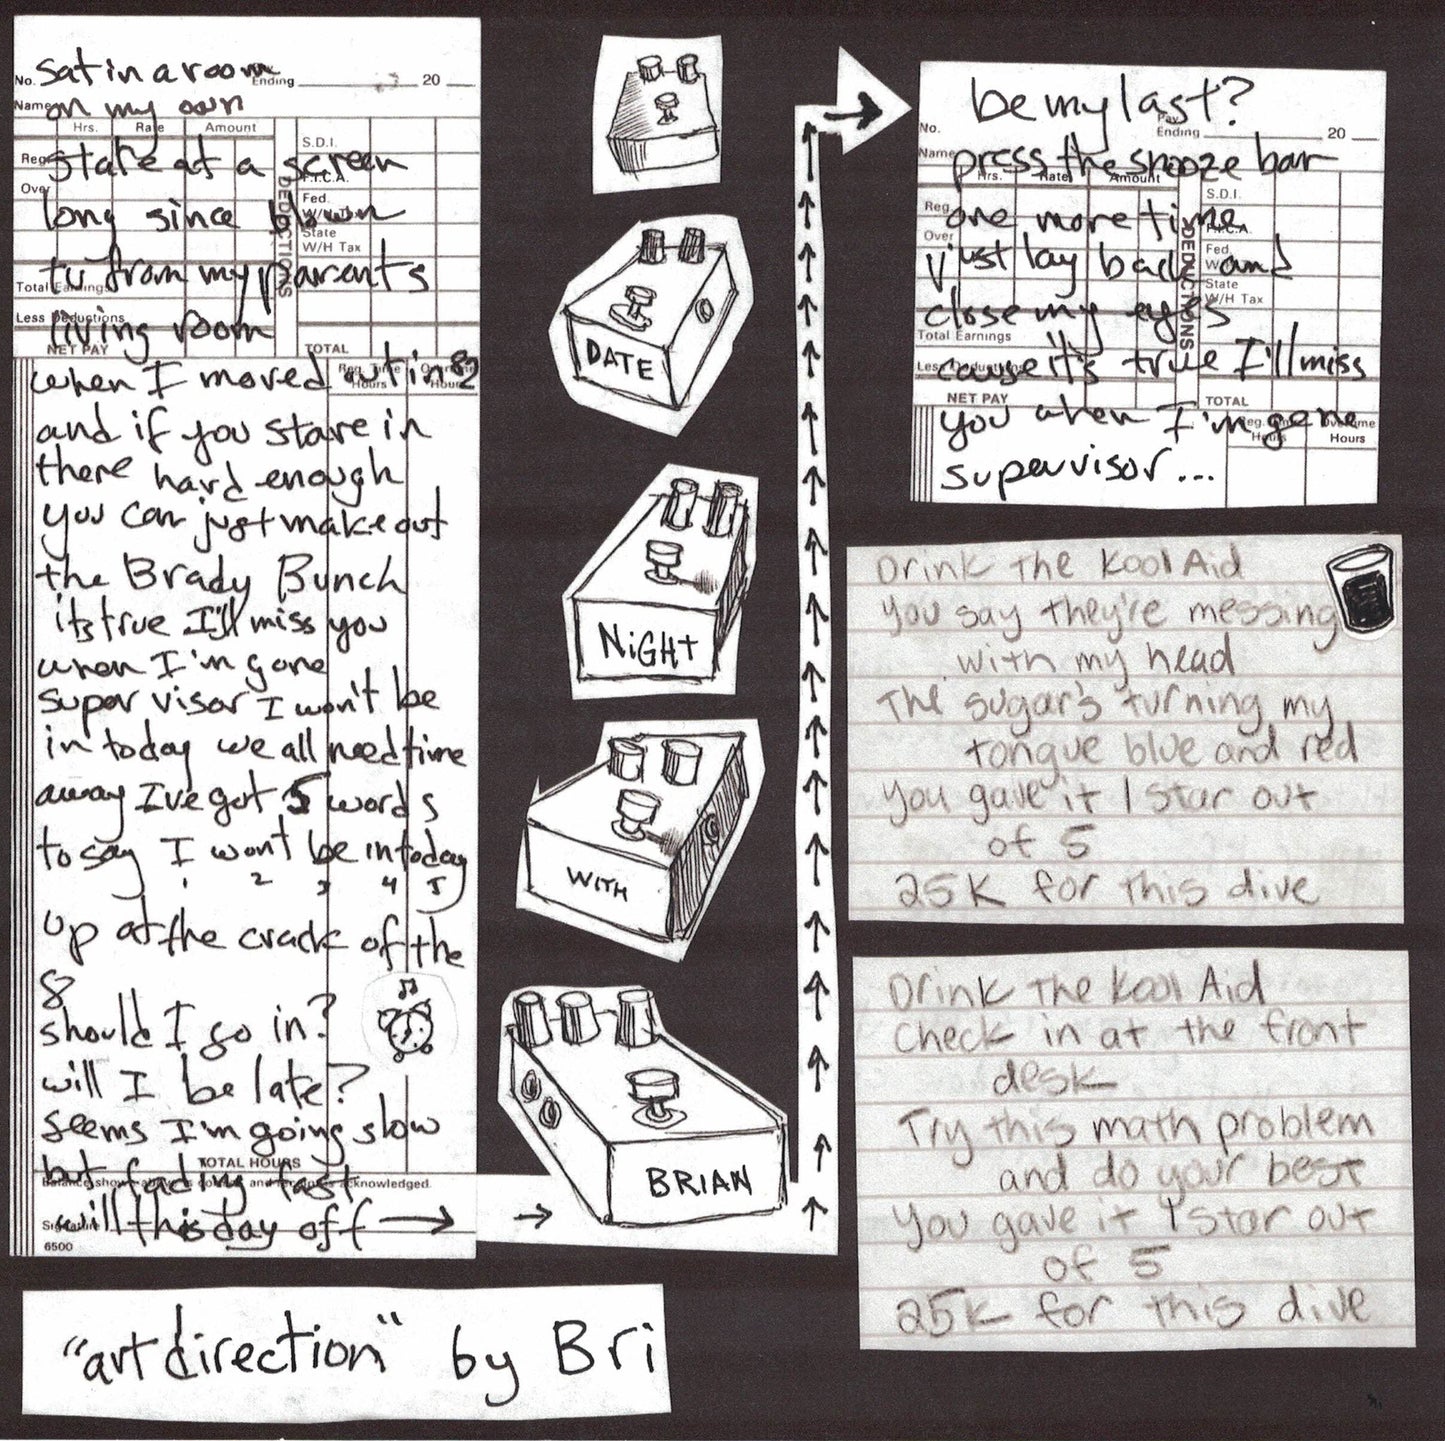 sat in a room
on my own
stare at a screen
long since blown
tv from my parents
living room
when I moved out in 82
and if you stare in
there hard enough
you can just make out
the Brady Bunch
its true I'll miss you
when I'm gone
supervisor I won't be
in today we all need time
away I've got 5 words
to say I won't be in today
1 2 3 4 5
up at the crack of the
8
should I go in?
will I be late?
seems I'm going slow
but fading fast
will this day off →
be my last?
press the snooze bar
one more time
just lay back and
close my eyes
cause it's true I'll miss
you when I'm gone
supervisor...
No.
Ending 20
Name
Hrs. Rate Amount
Reg.
Over
Total Earnings
Less Deductions
NET PAY
DEDUCTIONS
S.D.I.
F.I.C.A.
Fed.
W/H Tax
State
W/H Tax
TOTAL
Reg. Time
Hours
Overtime
Hours
TOTAL HOURS
Signature
6500
No.
Pay
Ending 20
Name
Hrs. Rate Amount
Reg.
Over
Total Earnings
Less Deductions
NET PAY
DEDUCTIONS
S.D.I.
F.I.C.A.
Fed.
State
W/H Tax
TOTAL
Overtime
Hours
Hours
DATE
NiGHT
WITH
BRIAN
Drink the Kool Aid
You say they're messing
with my head
The sugar's turning my
tongue blue and red
You gave it 1 star out
of 5
25K for this dive
Drink the Kool Aid
Check in at the front
desk
Try this math problem
and do your best
You gave it 1 star out
of 5
25K for this dive
"art direction" by Bri